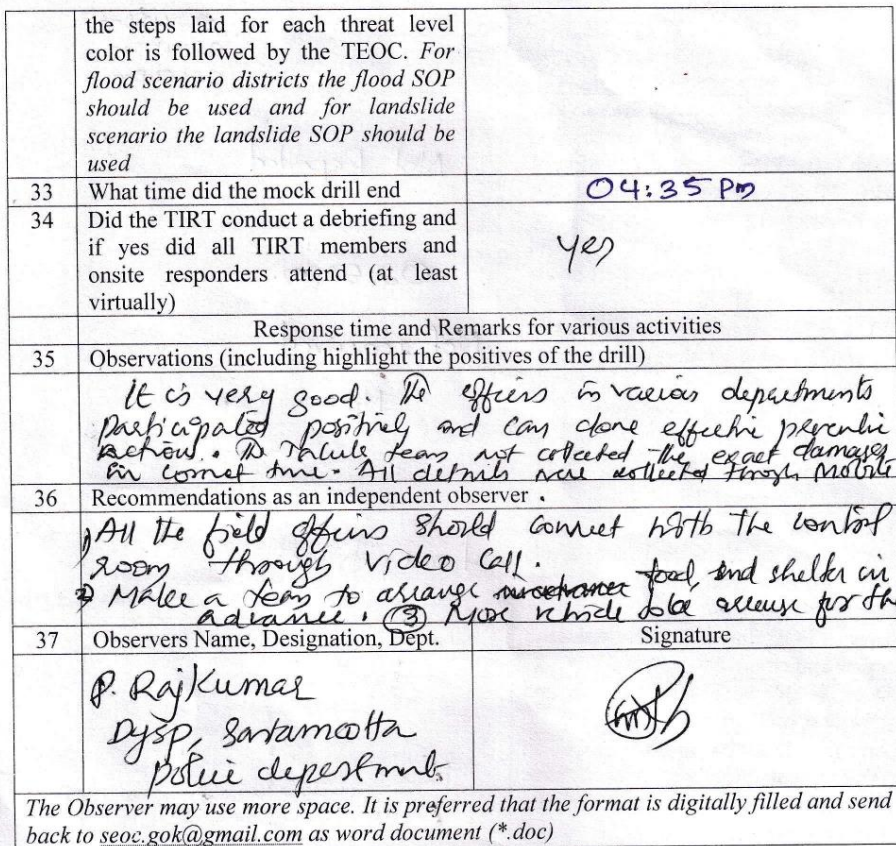 the steps laid for each threat level
color is followed by the TEOC. For
flood scenario districts the flood SOP
should be used and for landslide
scenario the landslide SOP should be
used
33 What time did the mock drill end 04:35 Pm
34 Did the TIRT conduct a debriefing and
if yes did all TIRT members and
onsite responders attend (at least
virtually)
yes
Response time and Remarks for various activities
35 Observations (including highlight the positives of the drill)
It is very good. The officers in various departments
participated positively and can done effective
action. The team not collected the exact damages
in correct time. All details were collected through Mobile
36 Recommendations as an independent observer .
1) All the field officers should connect with the control
room through video call.
2) Make a team to arrange food, and shelter in
advance. (3) More vehicle to be for the
37 Observers Name, Designation, Dept. Signature
P. Rajkumar
Dysp,
police department
The Observer may use more space. It is preferred that the format is digitally filled and send
back to seoc.gok@gmail.com as word document (*.doc)